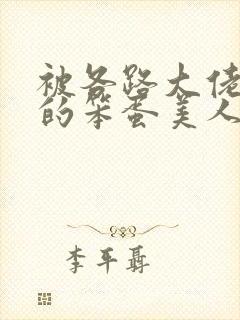 被各路大佬
的笨蛋美人
李平聶